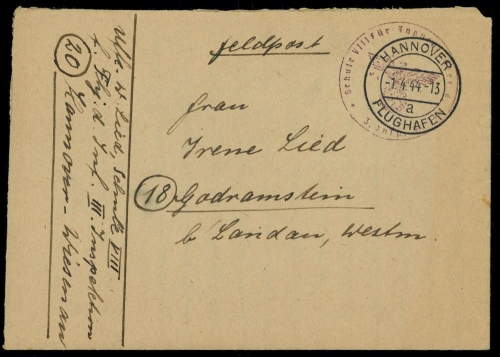 Feldpost
Schule VIII für
HANNOVER
-7.4.44-13
a
FLUGHAFEN
Frau
Irene Lied
(18) Godramstein
b Landau, Westm.
Uffz. H. Lied, Schule VIII
f. Fhj. d. Inf. III. Inspektion
(20) Hannover-Wiesenau